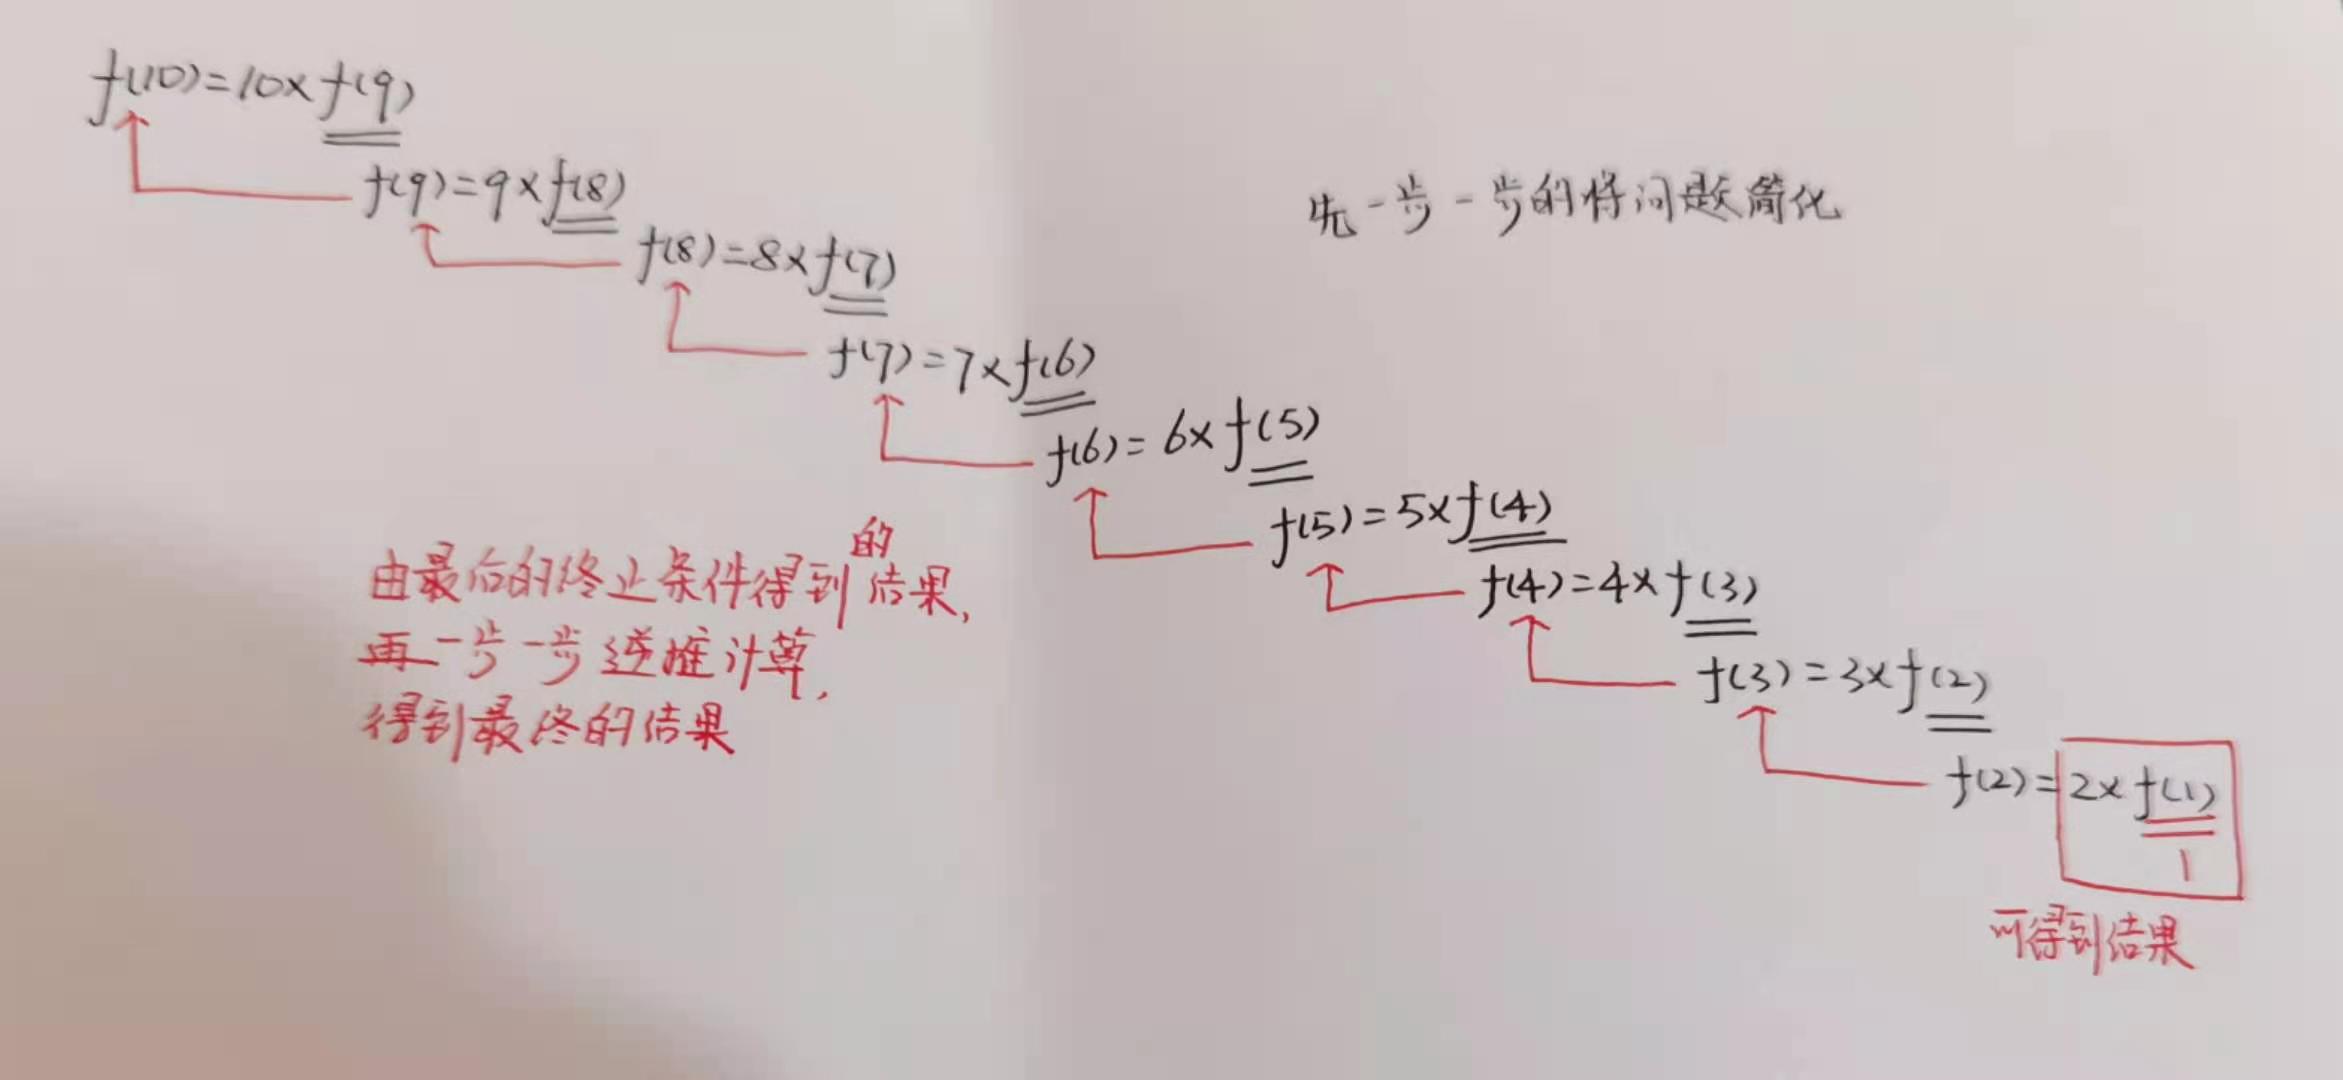 f(10)=10×f(9)
f(9)=9×f(8)
先一步一步的将问题简化
f(8)=8×f(7)
f(7)=7×f(6)
f(6)=6×f(5)
f(5)=5×f(4)
f(4)=4×f(3)
f(3)=3×f(2)
f(2)=2×f(1)
1
可得到结果
由最后的终止条件得到的结果,
再一步一步逆推计算,
得到最终的结果